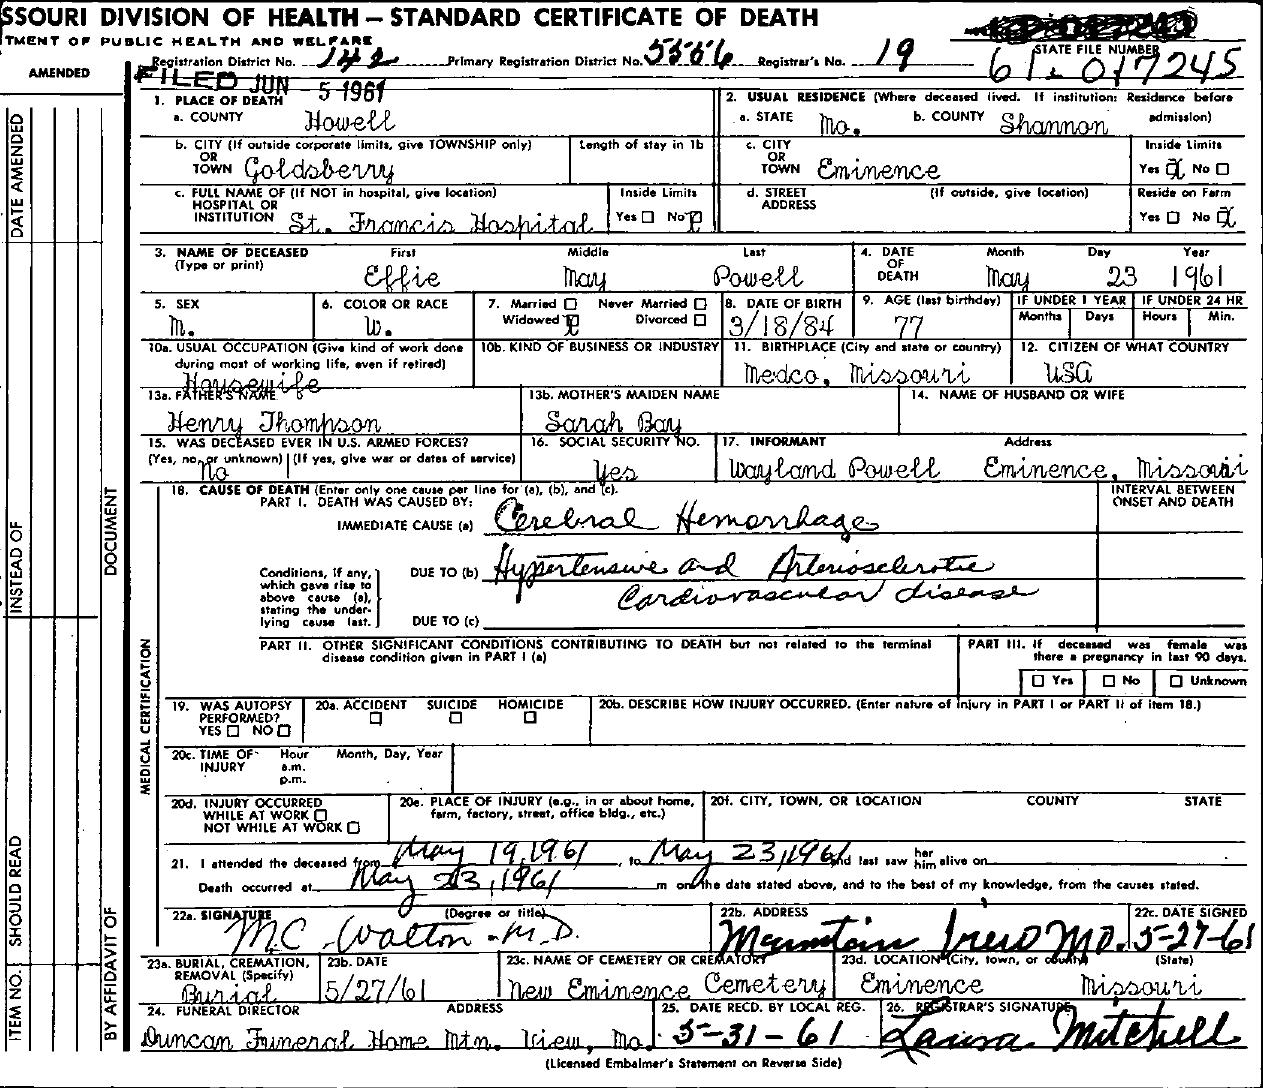 SSOURI DIVISION OF HEALTH — STANDARD CERTIFICATE OF DEATH
TMENT OF PUBLIC HEALTH AND WELFARE
Registration District No. 142 Primary Registration District No. 5556 Registrar's No. 19
STATE FILE NUMBER
61-017245
AMENDED
FILED JUN - 5 1961
1. PLACE OF DEATH
a. COUNTY Howell
2. USUAL RESIDENCE (Where deceased lived. If institution: Residence before admission)
a. STATE Mo. b. COUNTY Shannon
b. CITY (If outside corporate limits, give TOWNSHIP only) OR TOWN Goldsberry
Length of stay in 1b
c. CITY OR TOWN Eminence
Inside Limits
Yes X No
c. FULL NAME OF (If NOT in hospital, give location) HOSPITAL OR INSTITUTION St. Francis Hospital
Inside Limits
Yes No
d. STREET ADDRESS (If outside, give location)
Reside on Farm
Yes No X
3. NAME OF DECEASED (Type or print)
First Middle Last
Effie May Powell
4. DATE OF DEATH
Month Day Year
May 23 1961
5. SEX
M.
6. COLOR OR RACE
W.
7. Married Never Married
Widowed Divorced
8. DATE OF BIRTH
3/18/84
9. AGE (last birthday)
77
IF UNDER 1 YEAR
Months Days
IF UNDER 24 HR
Hours Min.
10a. USUAL OCCUPATION (Give kind of work done during most of working life, even if retired)
Housewife
10b. KIND OF BUSINESS OR INDUSTRY
11. BIRTHPLACE (City and state or country)
Medco, Missouri
12. CITIZEN OF WHAT COUNTRY
USA
13a. FATHER'S NAME
Henry Thompson
13b. MOTHER'S MAIDEN NAME
Sarah Bay
14. NAME OF HUSBAND OR WIFE
15. WAS DECEASED EVER IN U.S. ARMED FORCES?
(Yes, no, or unknown) (If yes, give war or dates of service)
No
16. SOCIAL SECURITY NO.
Yes
17. INFORMANT Address
Wayland Powell Eminence, Missouri
18. CAUSE OF DEATH (Enter only one cause per line for (a), (b), and (c).
PART I. DEATH WAS CAUSED BY:
INTERVAL BETWEEN ONSET AND DEATH
IMMEDIATE CAUSE (a) Cerebral Hemorrhage
Conditions, if any, which gave rise to above cause (a), stating the underlying cause last.
DUE TO (b) Hypertensive and Arteriosclerotic
Cardiovascular disease
DUE TO (c)
PART II. OTHER SIGNIFICANT CONDITIONS CONTRIBUTING TO DEATH but not related to the terminal disease condition given in PART I (a)
PART III. If deceased was female was there a pregnancy in last 90 days.
Yes No Unknown
19. WAS AUTOPSY PERFORMED?
YES NO
20a. ACCIDENT SUICIDE HOMICIDE
20b. DESCRIBE HOW INJURY OCCURRED. (Enter nature of injury in PART I or PART II of item 18.)
20c. TIME OF INJURY Hour a.m. p.m. Month, Day, Year
20d. INJURY OCCURRED
WHILE AT WORK
NOT WHILE AT WORK
20e. PLACE OF INJURY (e.g., in or about home, farm, factory, street, office bldg., etc.)
20f. CITY, TOWN, OR LOCATION COUNTY STATE
21. I attended the deceased from May 19, 1961, to May 23, 1961 and last saw her him alive on
Death occurred at May 23, 1961 m on the date stated above, and to the best of my knowledge, from the causes stated.
22a. SIGNATURE (Degree or title)
MC Walton - M.D.
22b. ADDRESS
Mountain View Mo.
22c. DATE SIGNED
5-27-61
23a. BURIAL, CREMATION, REMOVAL (Specify)
Burial
23b. DATE
5/27/61
23c. NAME OF CEMETERY OR CREMATORY
New Eminence Cemetery
23d. LOCATION (City, town, or county) (State)
Eminence Missouri
24. FUNERAL DIRECTOR ADDRESS
Duncan Funeral Home Mtn. View, Mo.
25. DATE RECD. BY LOCAL REG.
5-31-61
26. REGISTRAR'S SIGNATURE
Laura Mitchell
(Licensed Embalmer's Statement on Reverse Side)
DATE AMENDED
INSTEAD OF
DOCUMENT
MEDICAL CERTIFICATION
SHOULD READ
ITEM NO.
BY AFFIDAVIT OF